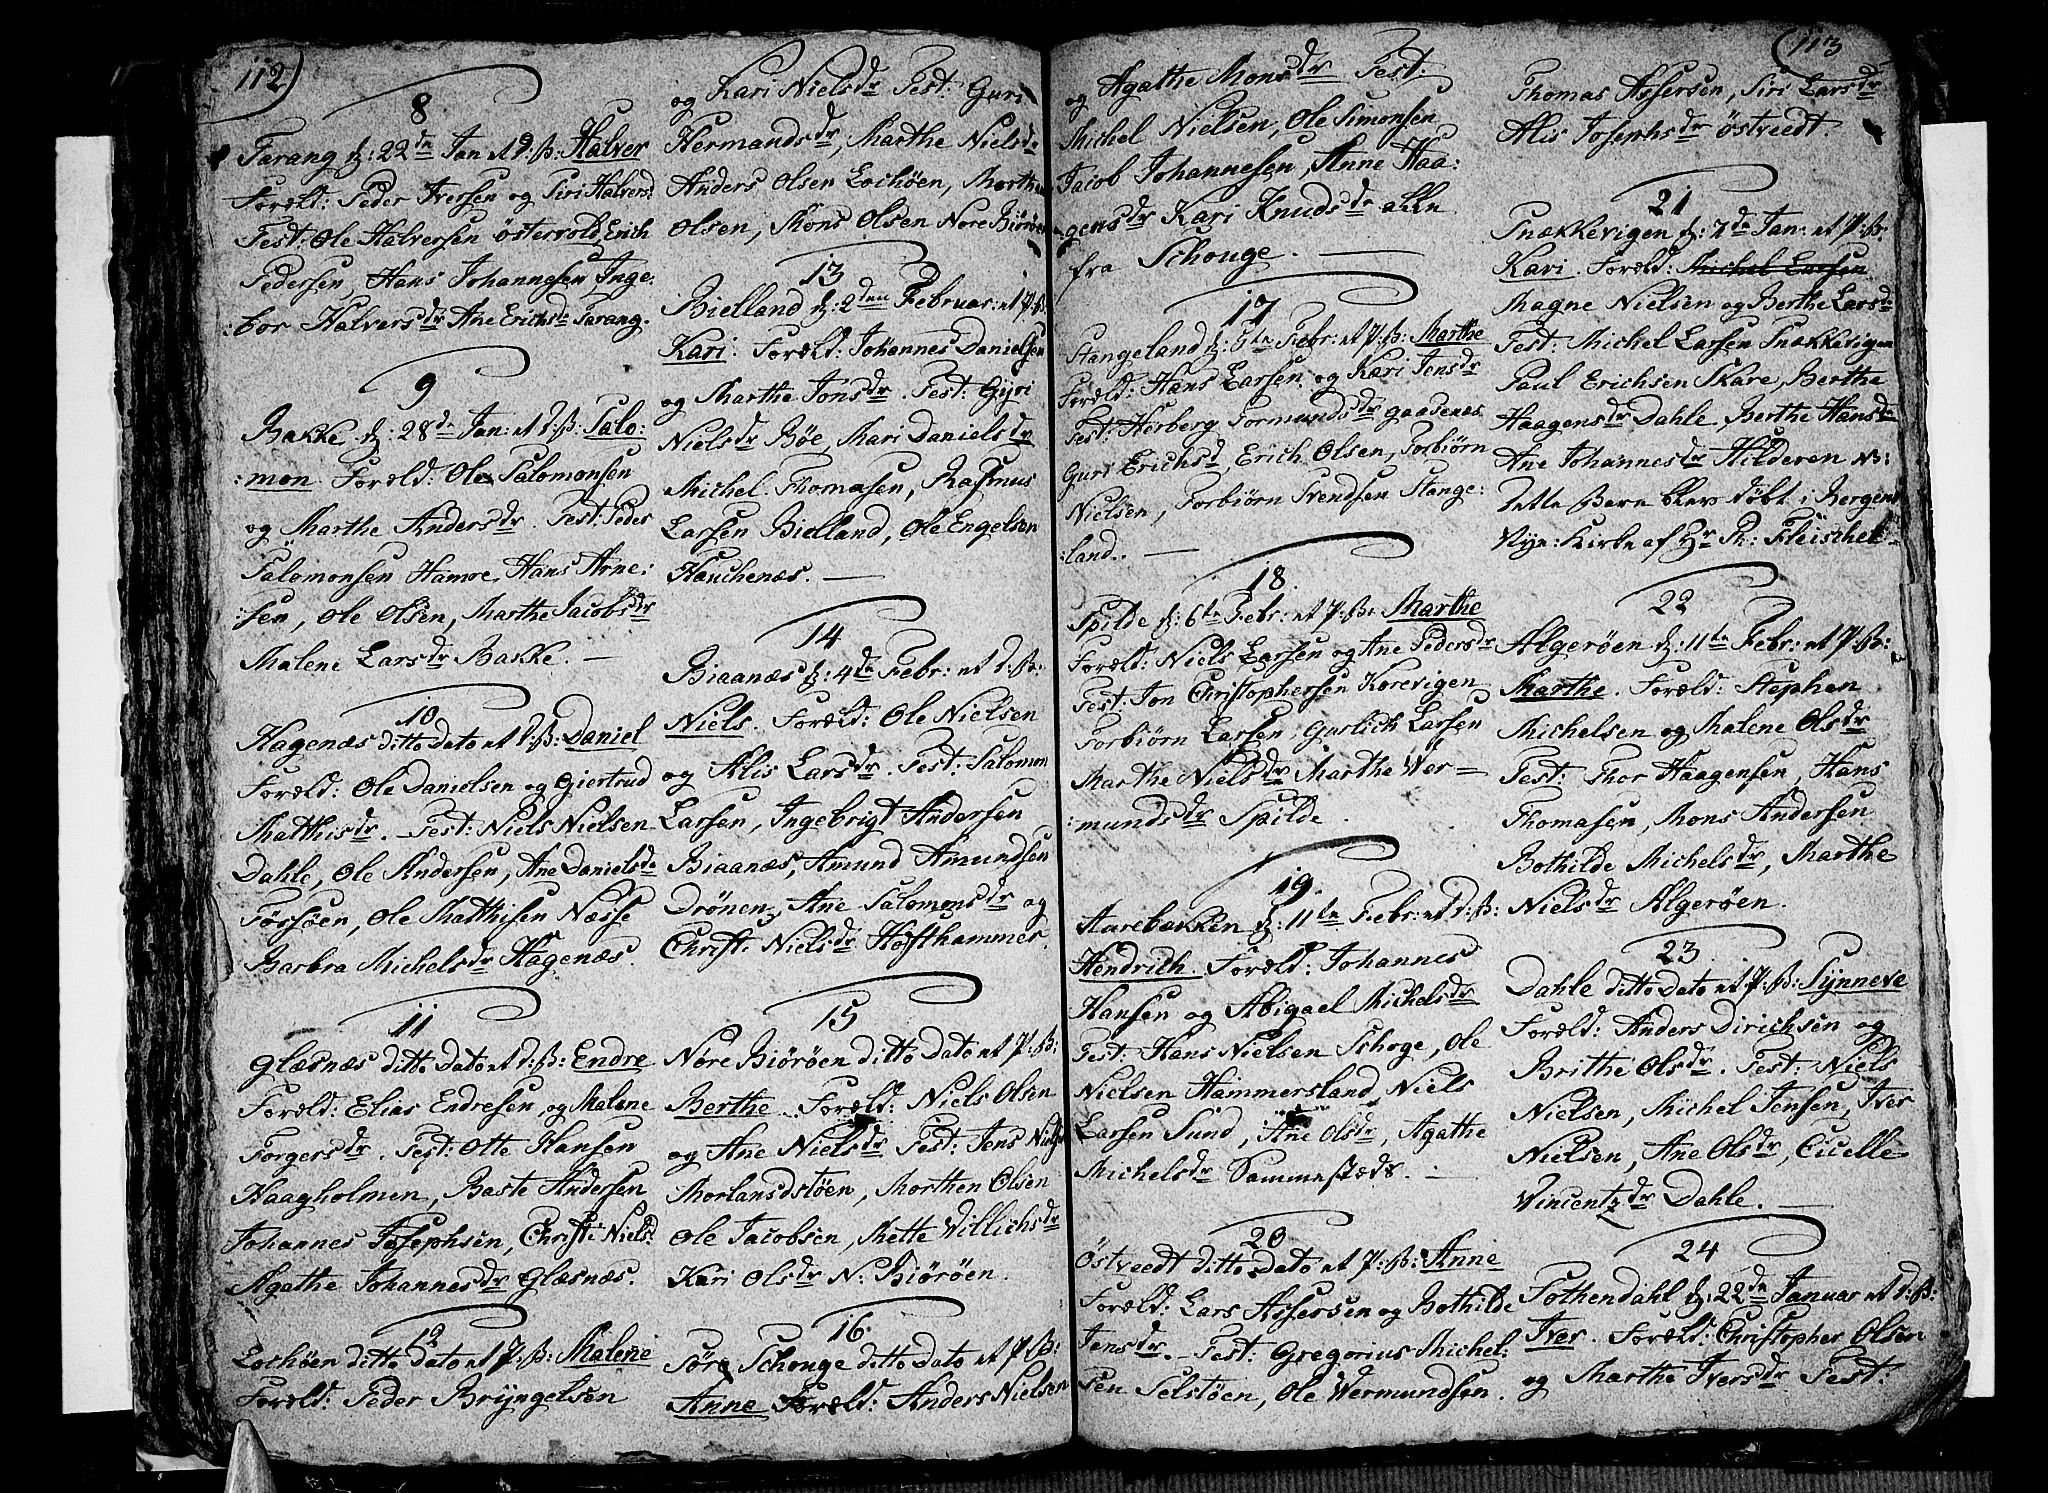 112)
8
Tarang d: 22de Jan et D: B: Halver
Foræld: Peder Iversen og Siri Halvers:
Test: Ole Halversen Östervold, Erich
Pedersen, Hans Johannesen, Inge:
:bor Halversdr Ane Erichsdr Tarang.
9
Bakke d: 28de Jan: et D: B: Salo:
:mon Foræld: Ole Salomonsen
og Marthe Andersdr. Test: Peder
Salomonsen Hamre, Hans Arne:
:sen, Ole Olsen, Marthe Jacobsdr
Malene Larsdr Bakke. —
10
Hagenæs ditto Dato et D: B: Daniel
Foræld: Ole Danielsen og Giertrud
Matthisdr. Test: Niels Nielsen
Dahle, Ole Andersen, Ane Danielsdr
Forsöen, Ole Matthisen Næsse
Barbra Michelsdr Hagenæs.
11
Glæsnæs ditto Dato et D: B: Endre
Foræld: Elias Endresen og Malene
Torgersdr. Test: Otte Hansen
Haagholmen, Baste Andersen
Johannes Josephsen, Christi: Nielsd:
Agathe Johannesdr Glæsnæs.
12
Lochöen ditto Dato et P: B: Malene
Foræld: Peder Bryngelsen
og Kari Nielsdr Test: Guri
Hermandsdr, Marthe Nielsdr
Anders Olsen Lochöen, Morthen
Olsen, Mons Olsen Nore Biöröen
13
Bielland d: 2den Februar: et P: B:
Kari. Foræld: Johannes Danielsen
og Marthe Jonsdr. Test: Gyri
Nielsdr Böe, Mari Danielsdr
Michel Thomasen, Rasmus
Larsen Bielland, Ole Engelsen
Hauchenæs. —
14
Biaanæs d: 4de Febr: et D: B:
Niels. Foræld: Ole Nielsen
og Alis Larsdr. Test: Salomon
Larsen, Ingebrigt Andersen
Biaanæs, Amund Amundsen
Drönen, Ane Salomonsdr og
Christi: Nielsdr Hofthammer.
15
Nore Biöröen ditto Dato et P: B:
Berthe. Foræld: Niels Olsen
og Ane Nielsdr Test: Jens Niels
Morlandstöen, Morthen Olsen
Ole Jacobsen, Mette Willichsdr
Kari Olsdr N: Biöröen.
16
Söre Schouge ditto Dato et P: B:
Anne Foræld: Anders Nielsen
113
og Agathe Monsdr Test:
Michel Nielsen, Ole Simonsen
Jacob Johannesen, Anne Haa:
gensdr Kari Knudsdr alle
fra Schouge. —
17
Stangeland d: 5te Febr: et P: B: Marthe
Foræld: Hans Larsen og Kari Jensdr
Test: Herberg Tormundsdr
Guri Erichsd, Erich Olsen, Torbiörn
Nielsen, Torbiörn Svendsen Stange:
:land. —
18.
Spilde d: 6te Febr: et P: B: Marthe
Foræld: Niels Larsen og Ane Pedersdr
Test: Jon Christophersen Korevigen
Torbiörn Larsen, Gurlich Larsen
Marthe Nielsdr Marthe Wer—
:mundsdr Spilde.
19.
Aurebækken d: 11te Febr: et D: B:
Hendrich. Foræld: Johannes
Hansen og Abigael Michelsdr
Test: Hans Nielsen Schoge, Ole
Nielsen Hammersland, Niels
Larsen Sund, Ane Olsdr, Agathe
Michelsdr Sammesteds. —
20
Östveedt ditto Dato et P: B: Anne
Foræld: Lars Assersen og Bothilde
Jensdr. — Test: Gregorius Michel:
sen Selstöen, Ole Wermundsen.
Thomas Assersen, Siri Larsdr
Alis Josephsdr Östveedt.
21
Snækkevigen d: 7de Jan: et P: B:
Kari. Foræld: Michel Larsen
Magne Nielsen og Berthe Larsdr
Test: Michel Larsen Snækkevigen
Paul Erichsen Skare, Berthe
Haagensdr Dahle, Berthe Hansdr
Ane Johannesdr Hilderen NB:
Dette Barn blev döbt i Bergens
Nye: Kirke af Hr Pr: Fleischer
22
Algeröen d: 11te Febr: et P: B:
Marthe. Foræld: Stephen
Michelsen og Malene Olsdr
Test: Thor Haagensen, Hans
Thomasen, Mons Andersen
Bothilde Michelsdr, Marthe
Nielsdr Algeröen.
23.
Dahle ditto Dato et P: B: Synneve
Foræld: Anders Dirichsen og
Brithe Olsdr. Test: Niels
Nielsen, Michel Jensen, Iver
Nielsen, Ane Olsdr, Cicelle
Vincentzdr Dahle. —
24
Tothendahl d: 22de Januar et D: B:
Iver. Foræld: Christopher Olsen
og Marthe Iversdr. Test: